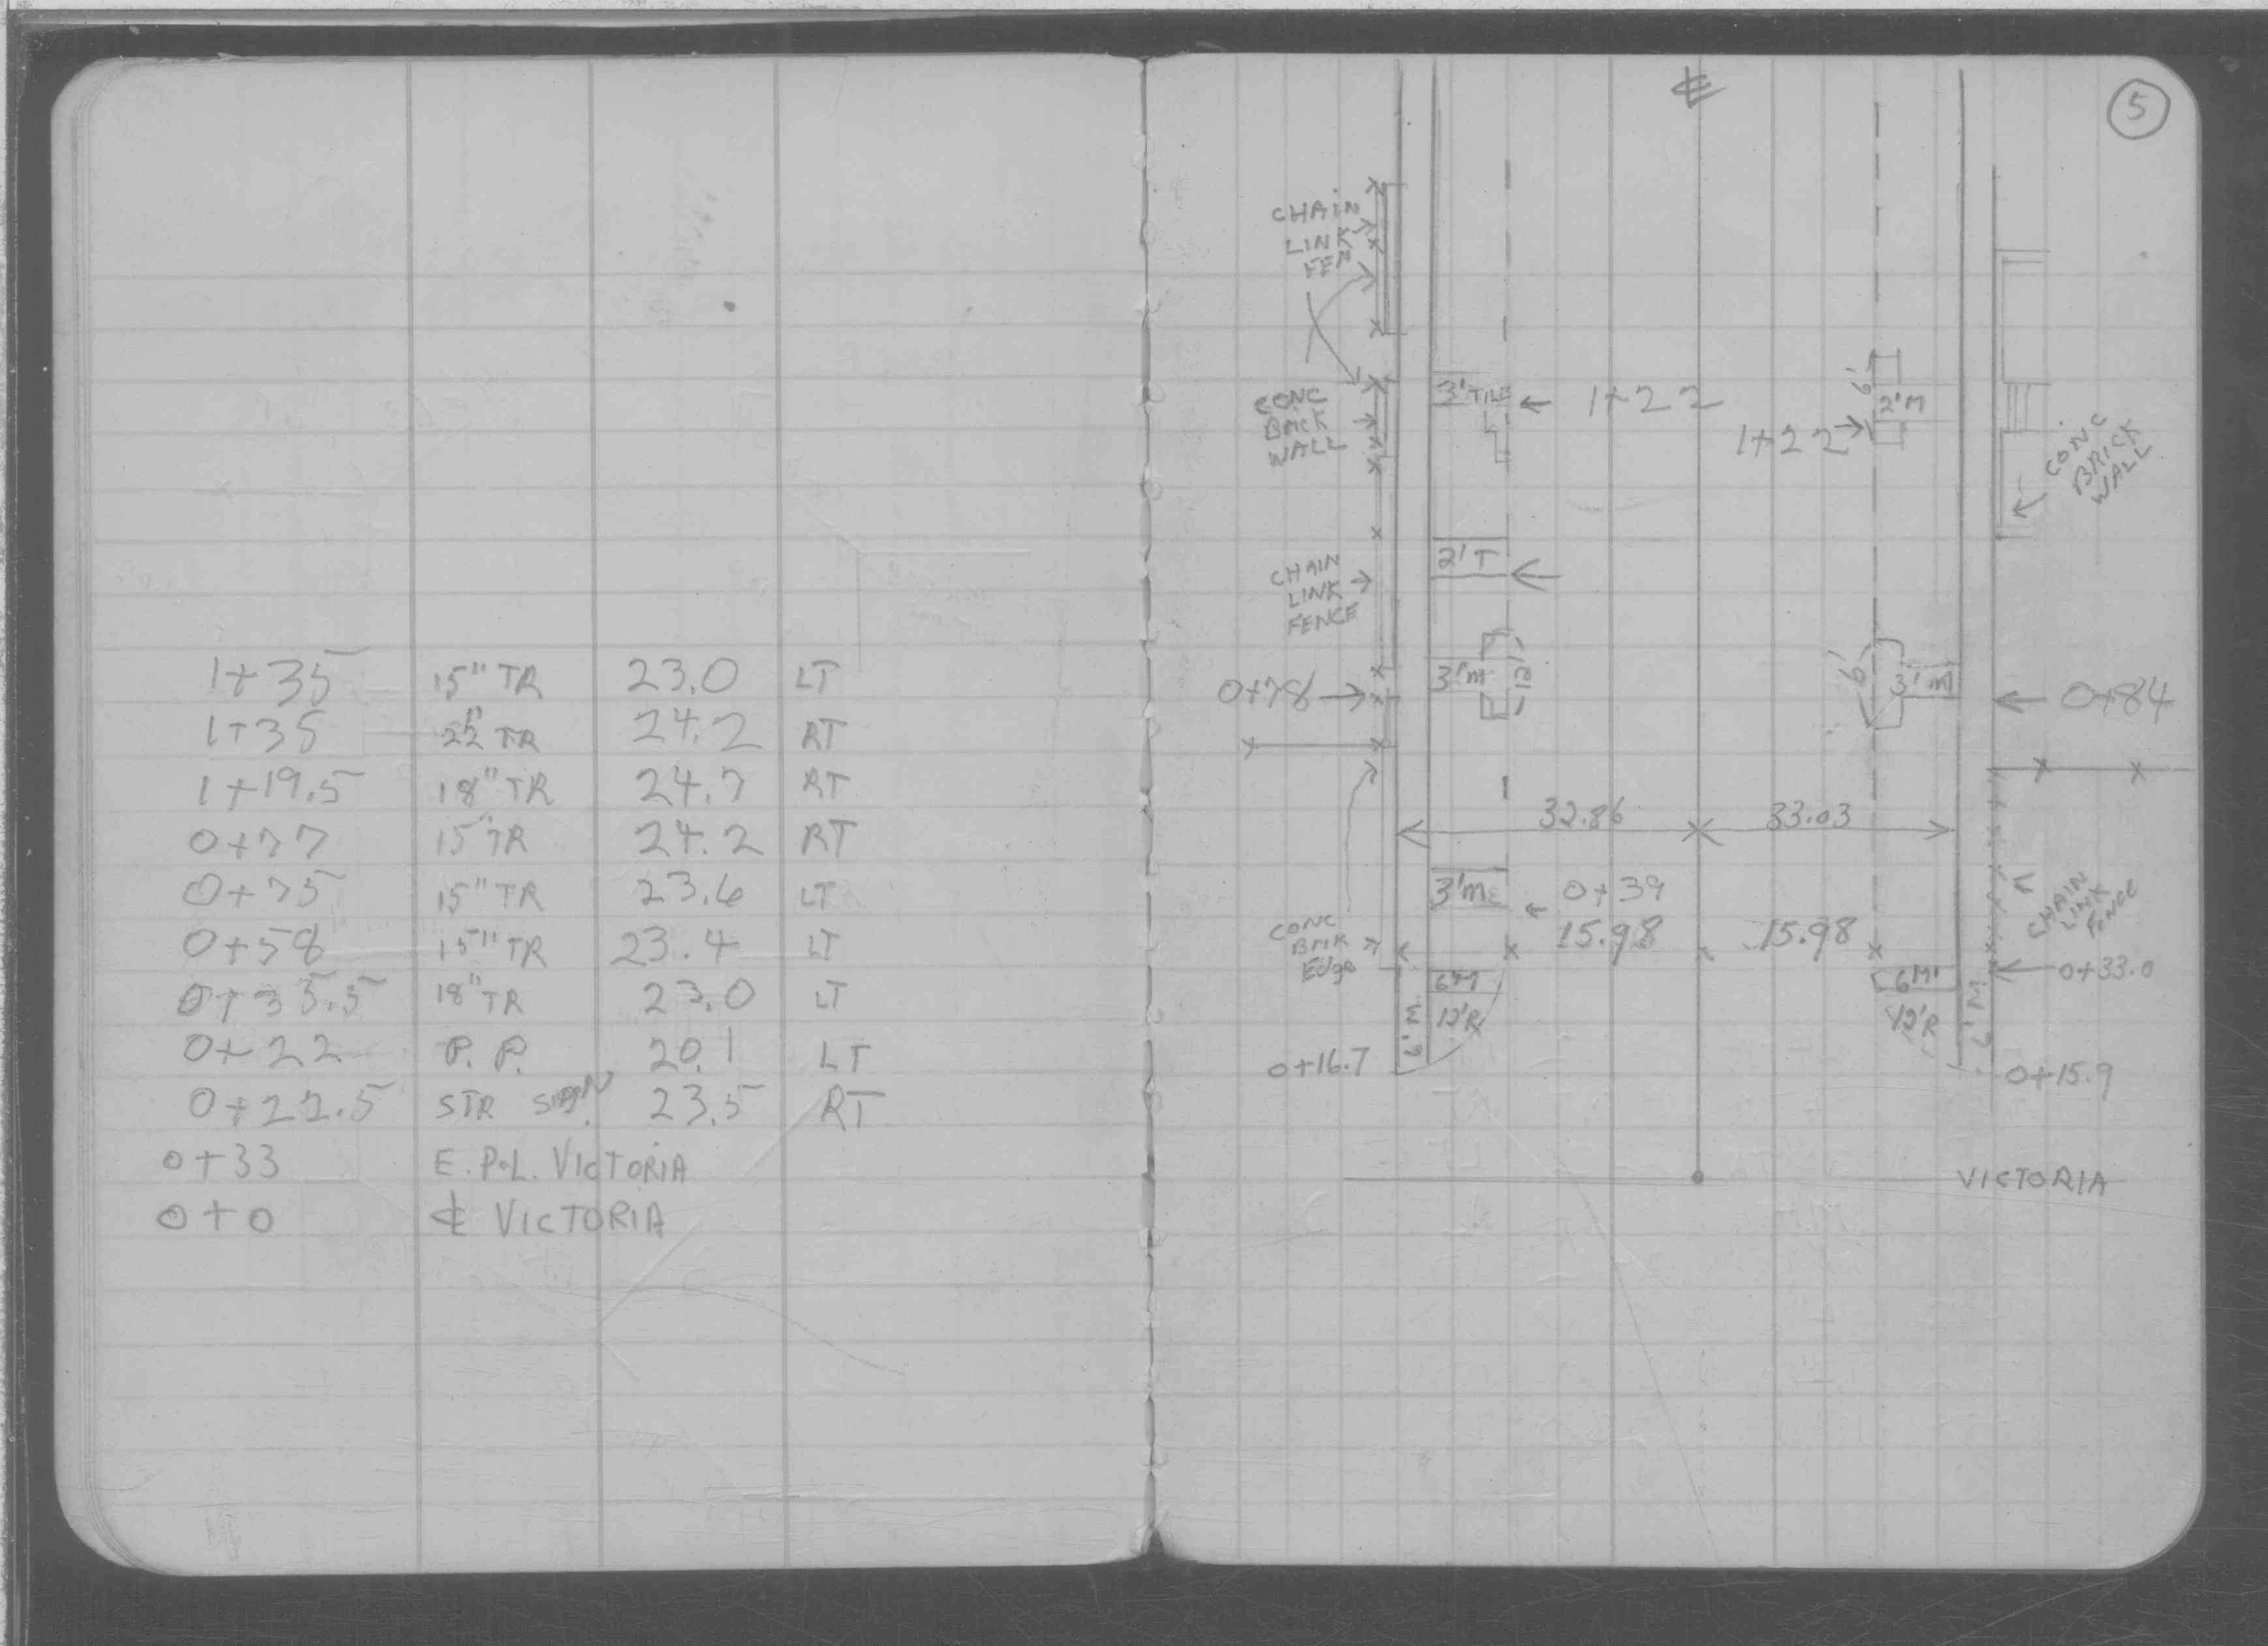 1+35 15" TR 23.0 LT
1+35 22" TR 24.2 RT
1+19.5 18" TR 24.7 RT
0+77 15" TR 24.2 RT
0+75 15" TR 23.6 LT
0+58 15" TR 23.4 LT
0+35.5 18" TR 23.0 LT
0+22 P.P. 20.1 LT
0+22.5 STR 23.5 RT
0+33 E. P.L. VICTORIA
0+0 ℄ VICTORIA
℄
5
CHAIN
LINK
FEN
CONC
BRCK
WALL
3' TILE
1+22
6'
2'M
1+22
CONC
BRICK
WALL
2'T
CHAIN
LINK
FENCE
0+78
3'M
12'
6'
3'M
0+84
32.86
33.03
3'M
0+39
15.98
15.98
CONC
BRK
Edge
CHAIN
LINK
FENCE
0+33.0
6'M
12'R
6'M
12'R
6'M
6'M
0+16.7
0+15.9
VICTORIA